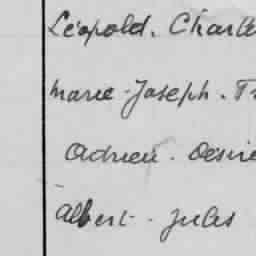 Léopold. Charle
Marie-Joseph. Fr
Adrien. Désiré
Albert. Jules